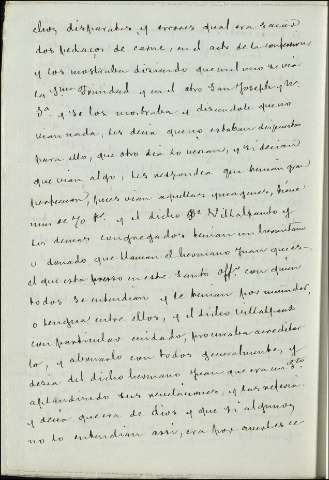 chos disparates, y errores qual era sacar
dos pedaços de carne, en el acto de la confession,
y los mostraba diciendo que en el uno se veia
la SSma. Trinidad y en el otro San Joseph y N.
Sa. y se los mostraba y diciendole que no
veian nada, les decia que no estaban dispuestos
para ello, que otro dia lo verian, y si decian
que vian algo, les respondia que tenian gran
perfeccion, pues veian aquellas ymagenes,
y el dicho Villalpando y
los demas congregados tenian un hermitaño
o donado que llaman el hermano Juan que es
el que esta preso en este Santo Offo. con quien
todos se entendian y le tenian por munidor,
o lengua entre ellos, y el dicho Villalpando
con particular cuidado, procuraba acreditar
lo, y abonarlo con todos generalmente, y
decia del dicho hermano Juan que era un Sto.
aplaudiendo sus revelaciones, y las referia
y decia que era de Dios y que si algunos
no lo entendian assi, era por averles ce